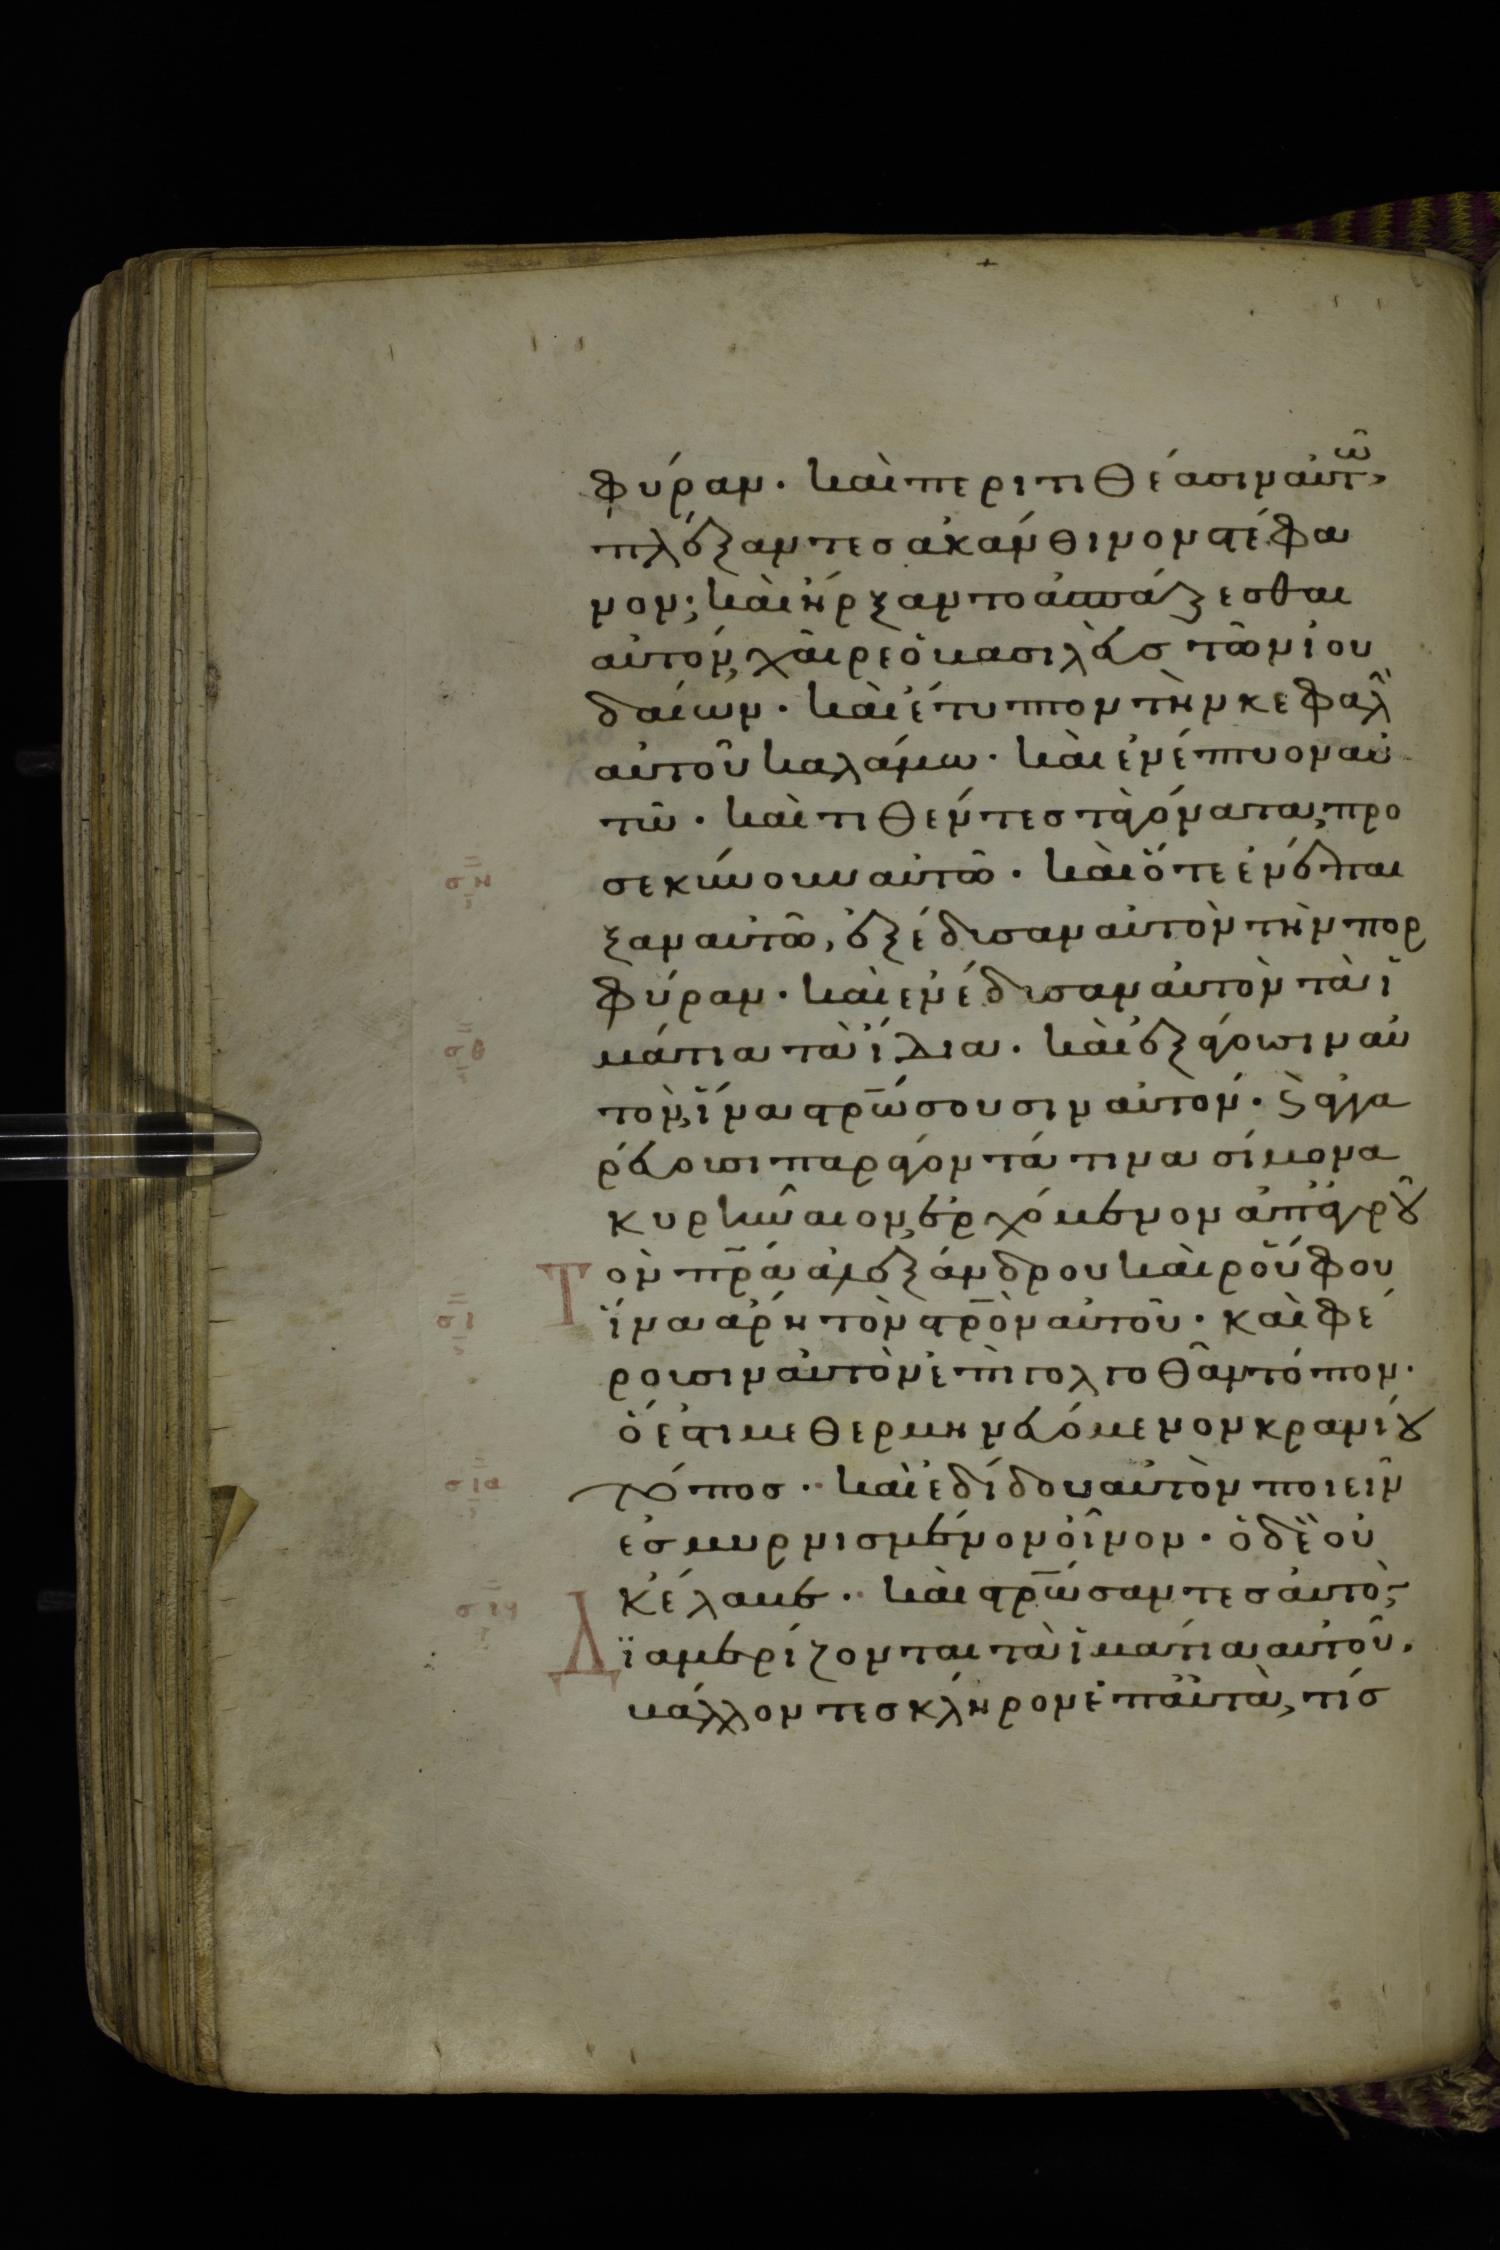 φύραν· καὶ περιτιθέασιν αὐτῶ,
πλέξαντες ἀκάνθινον στέφα
νον; καὶ ἤρξαντο ἀσπάζεσθαι
αὐτόν, χαῖρε ὁ βασιλεὺς τῶν ἰου
δαίων· καὶ ἔτυπτον τὴν κεφαλὴ
αὐτοῦ καλάμω· καὶ ἐνέπτυον αὐ
τῶ· καὶ τιθέντες τὰ γόνατα, προ
σεκύνουν αὐτῶ· καὶ ὅτε ἐνέπαι
ξαν αὐτῶ, ἐξέδυσαν αὐτὸν τὴν πορ
φύραν· καὶ ἐνέδυσαν αὐτὸν τὰ ἱ
μάτια τὰ ἴδια· καὶ ἐξάγουσιν αὐ
τὸν, ἵνα στρώσουσιν αὐτόν· κ̀ ἀγγα
ρεύουσι παράγοντά τινα σίμονα
κυρηναῖον, ἐρχόμενον ἀπ' ἀγροῦ
Τὸν πρα ἀλεξάνδρου καὶ ρούφου
ἵνα ἄρη τὸν στρον αὐτοῦ· καὶ φέ
ρουσιν αὐτὸν ἐπὶ γολγοθᾶν τόπον·
ὅ ἐστι μεθερμηνευόμενον κρανίου
τόπος· καὶ ἐδίδουν αὐτὸν ποιεῖν
ἐσμυρνισμένον οἶνον· ὁ δὲ οὐ
κ ἔλαβε· καὶ στρώσαντες αὐτὸ,
Δϊαμερίζονται τὰ ἱμάτια αὐτοῦ,
βάλλοντες κλῆρον ἐπ' αὐτὰ, τίς
ση
σθ
σι
σια